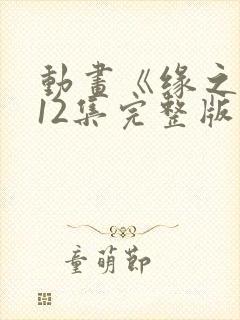 動畫《緣之
12集完整版
童萌節